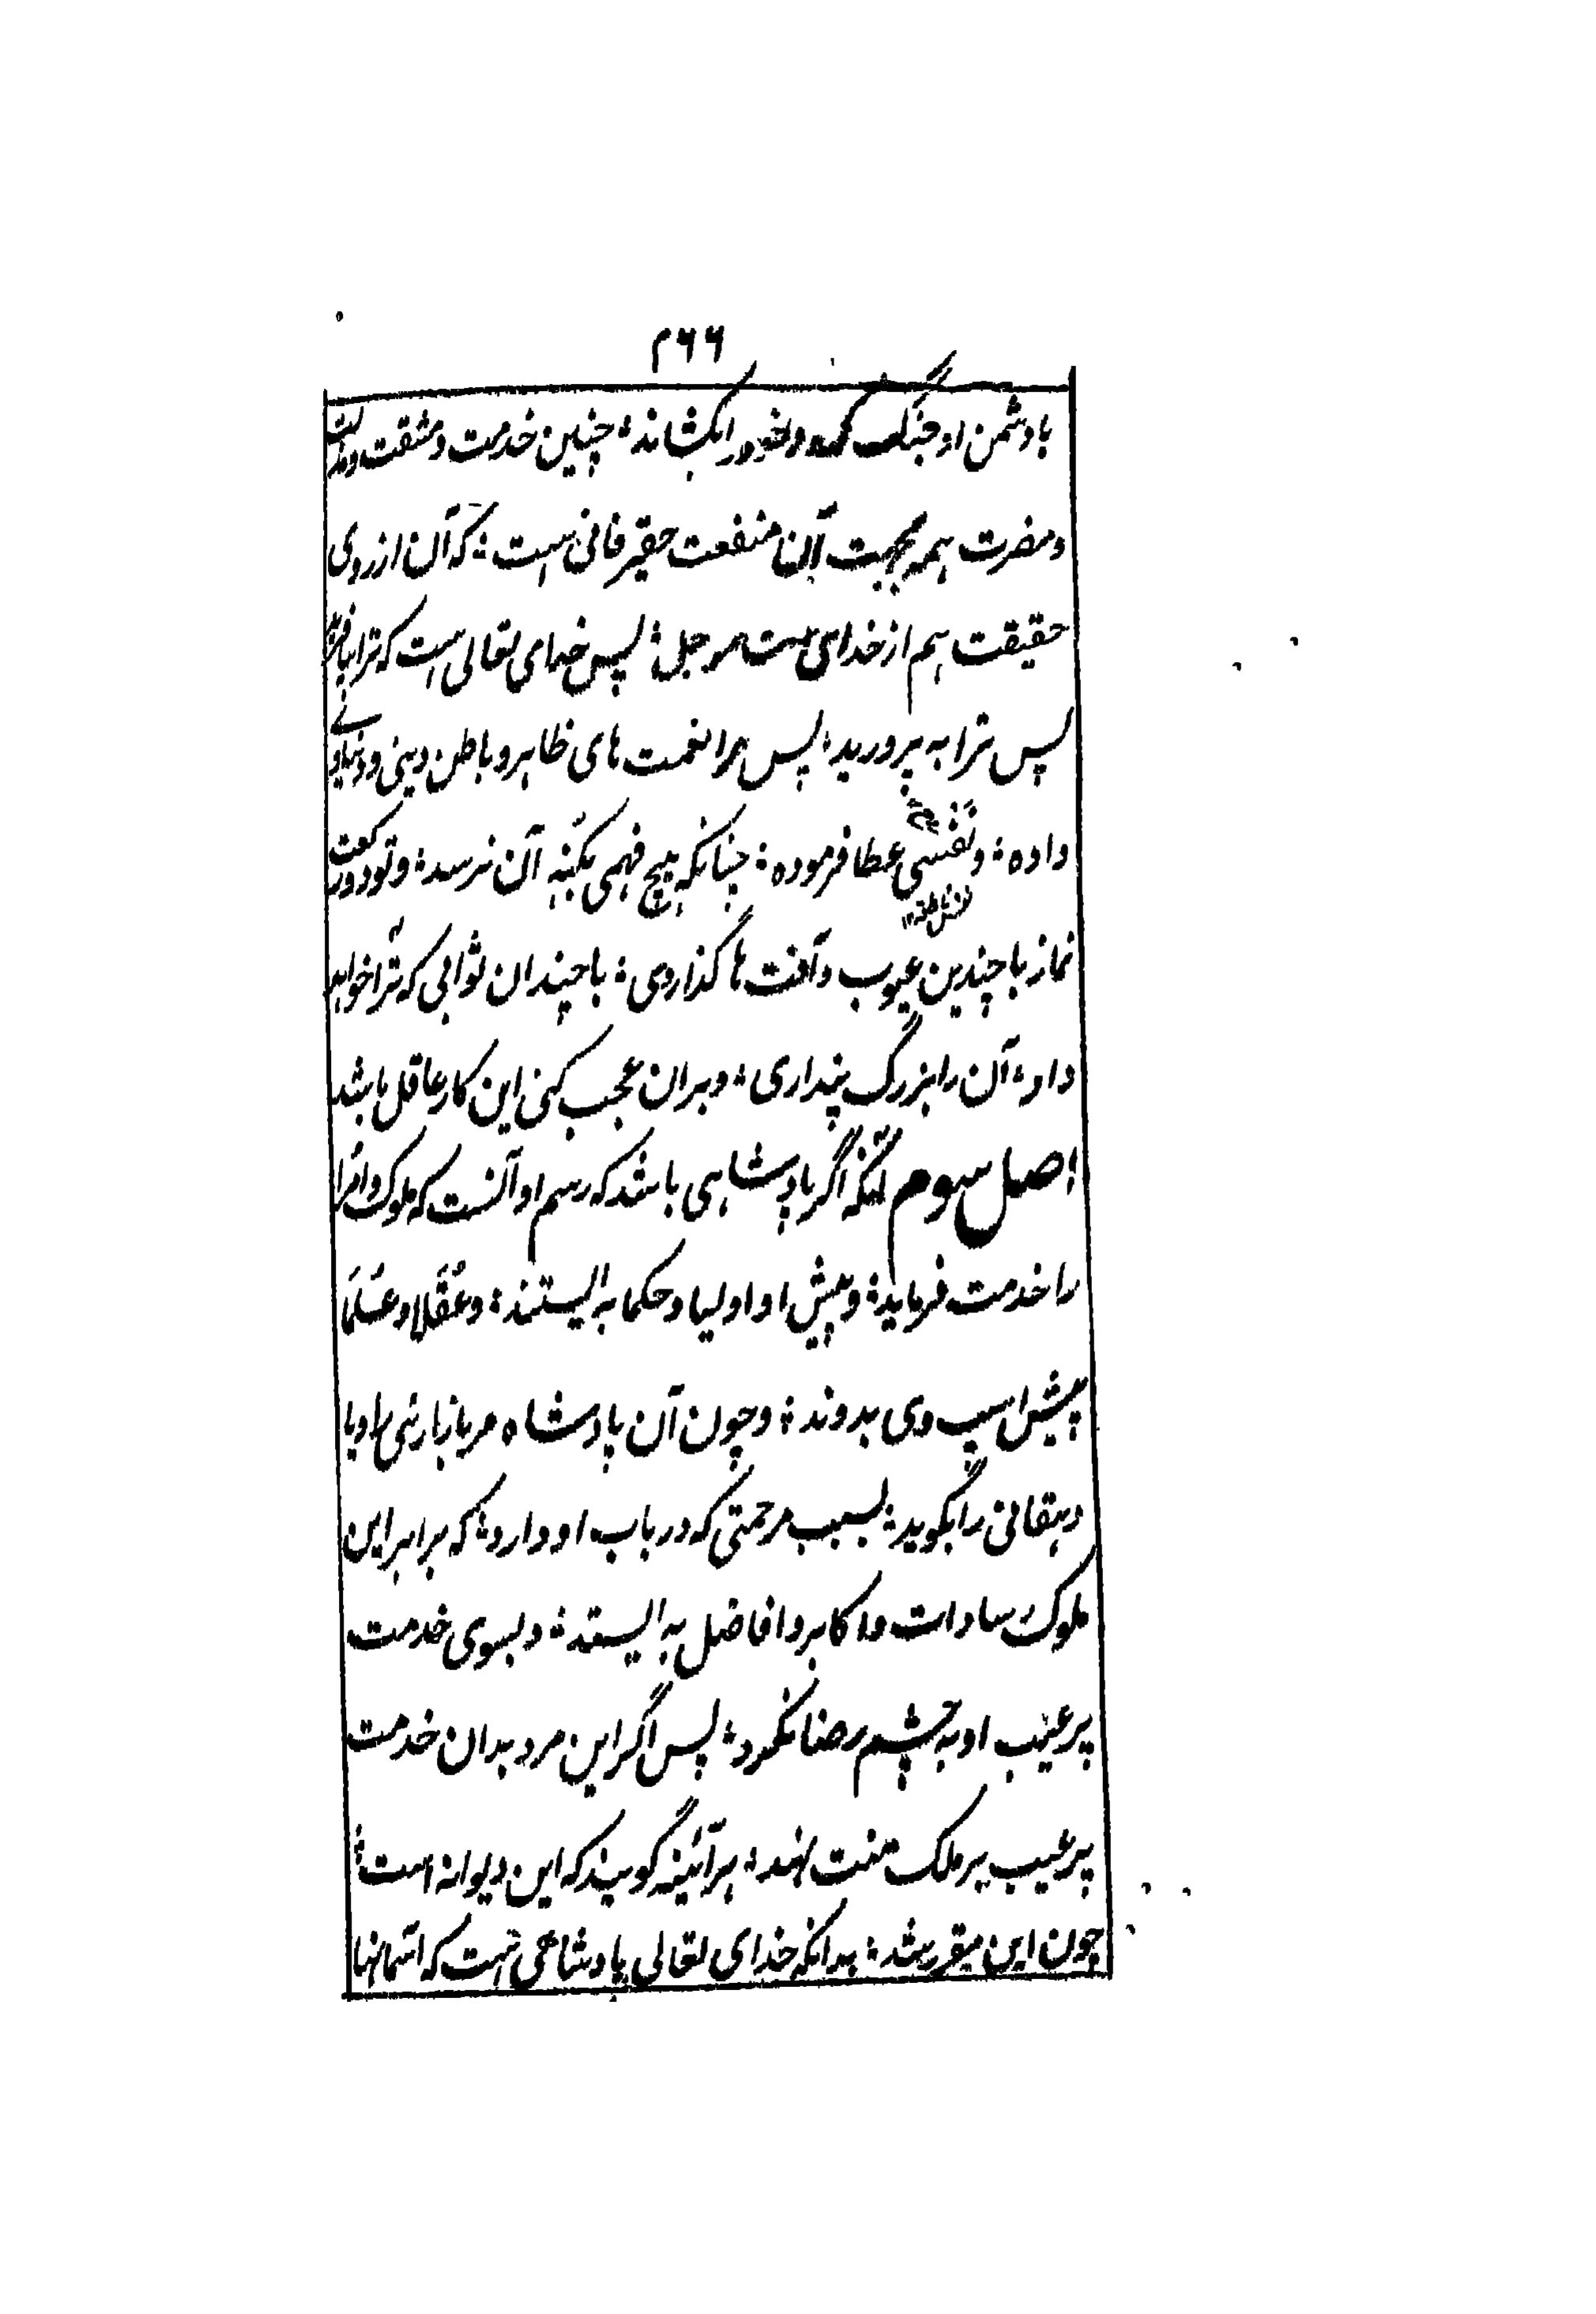 ۲۶۶
با دشمن او جنگ کند و خود را بکشاند؛ چنین خدمت و مشقت و مذلت
و مضرت همه بجهت آن منفعت حقیر فانی است؛ که آن از روی
حقیقت هم از خدای است عز و جل؛ پس خدای تعالی است که ترا بیافرید
پس ترا به پرورید؛ پس مرا نعمت های ظاهر و باطن دینی و دنیاوی
داده؛ و نفسی عطا فرموده؛ چنانکه هیچ فهمی بکنه آن نرسد؛ و تو دو رکعت
نماز با چندین عیوب و آفت ها گذاروی؛ با چندان ثوابی که ترا خواهد
داد؛ آن را بزرگ پنداری؛ و بران عجب کنی این کار عاقل باشد
اصل سوم آنکه اگر پادشاهی باشد که رسم او آنست که ملوک و امرا
را خدمت فرماید؛ و پیش او اولیا و حکما به ایستند؛ و عقلا و علما
پیش اسپ وی بدوند؛ و چون آن پادشاه مر بازاری را و یا
دهقانی را بگوید؛ بسبب مرحمتی که در باب او دارد؛ که برابر این
ملوک سادات و اکابر و افاضل به ایستد؛ و بسوی خدمت
پر عیب او به چشم رضا نگرد؛ پس اگر این مرد بدان خدمت
پر عیب بر ملک منت نهد؛ هر آئینه گویند که این دیوانه است؛
چون این مقرر شد؛ بدانکه خدای تعالی پادشاهی است که آسمانها